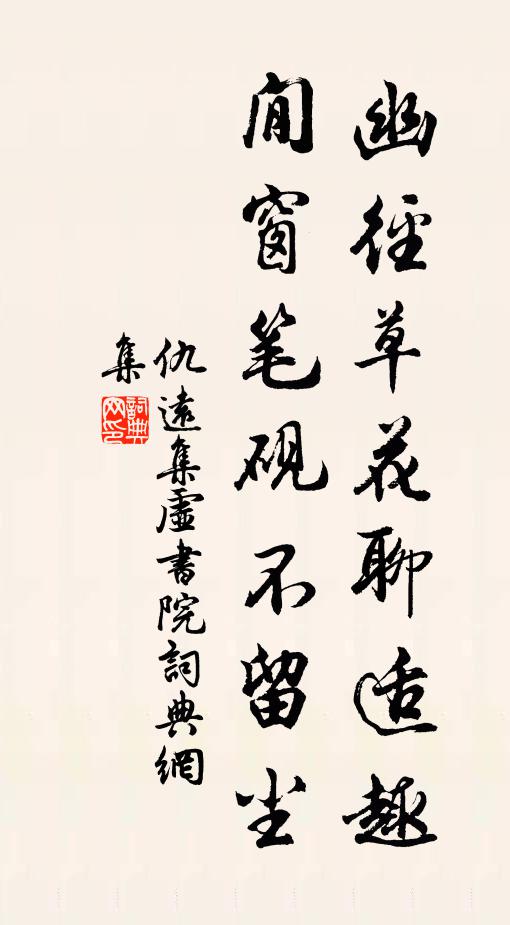 幽徑草花聊适趣
閒窗笔硯不留尘
仇遠集虛書院詞典網
集
詞典
网印